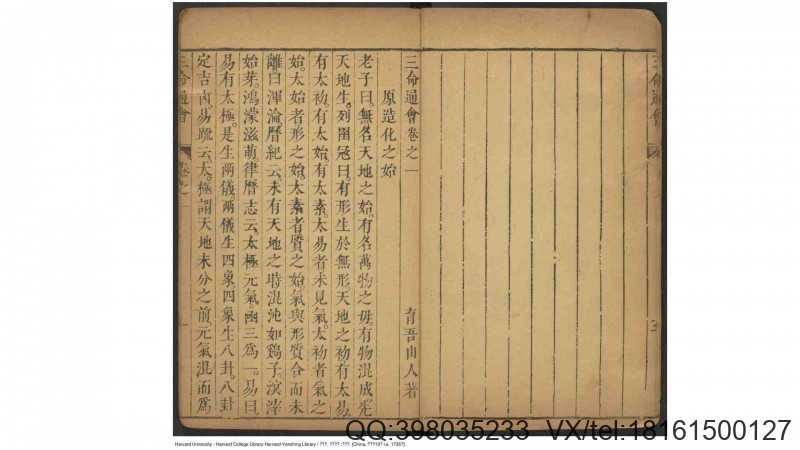 三命通會
三命通會卷之一
育吾山人著
原造化之始
老子曰無名天地之始有名萬物之母有物混成先
天地生列圄冦曰有形生於無形天地之初有太易
有太初有太始有太素太易者未見氣太初者氣之
始太始者形之始太素者質之始氣與形質合而未
離曰渾淪曆紀云未有天地之時混沌如鷄子溟涬
始芽鴻濛滋萌律曆志云太極元氣函三為一易曰
易有太極是生兩儀兩儀生四象四象生八卦八卦
定吉凶易䟽云太極謂天地未分之前元氣混而為
三命通會
卷之一
Harvard University - Harvard College Library Harvard-Yenching Library /
QQ:398035233 VX/tel:18161500127